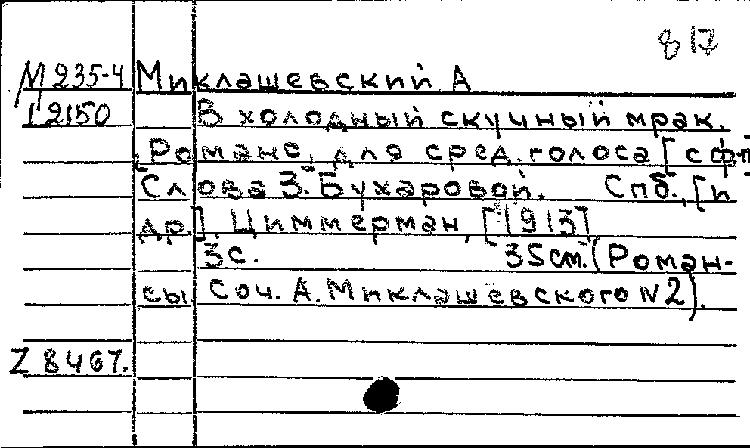 817
М 235-4 Миклашевский А
12150 В холодный скучный мрак.
[Романс, для сред. голоса [с ф-п
Слова З. Бухаровой. Спб., [и
др.]. Циммерман, [1913]
3с. 35см. (Роман-
сы Соч. А. Миклашевского N2).
Z 8467.